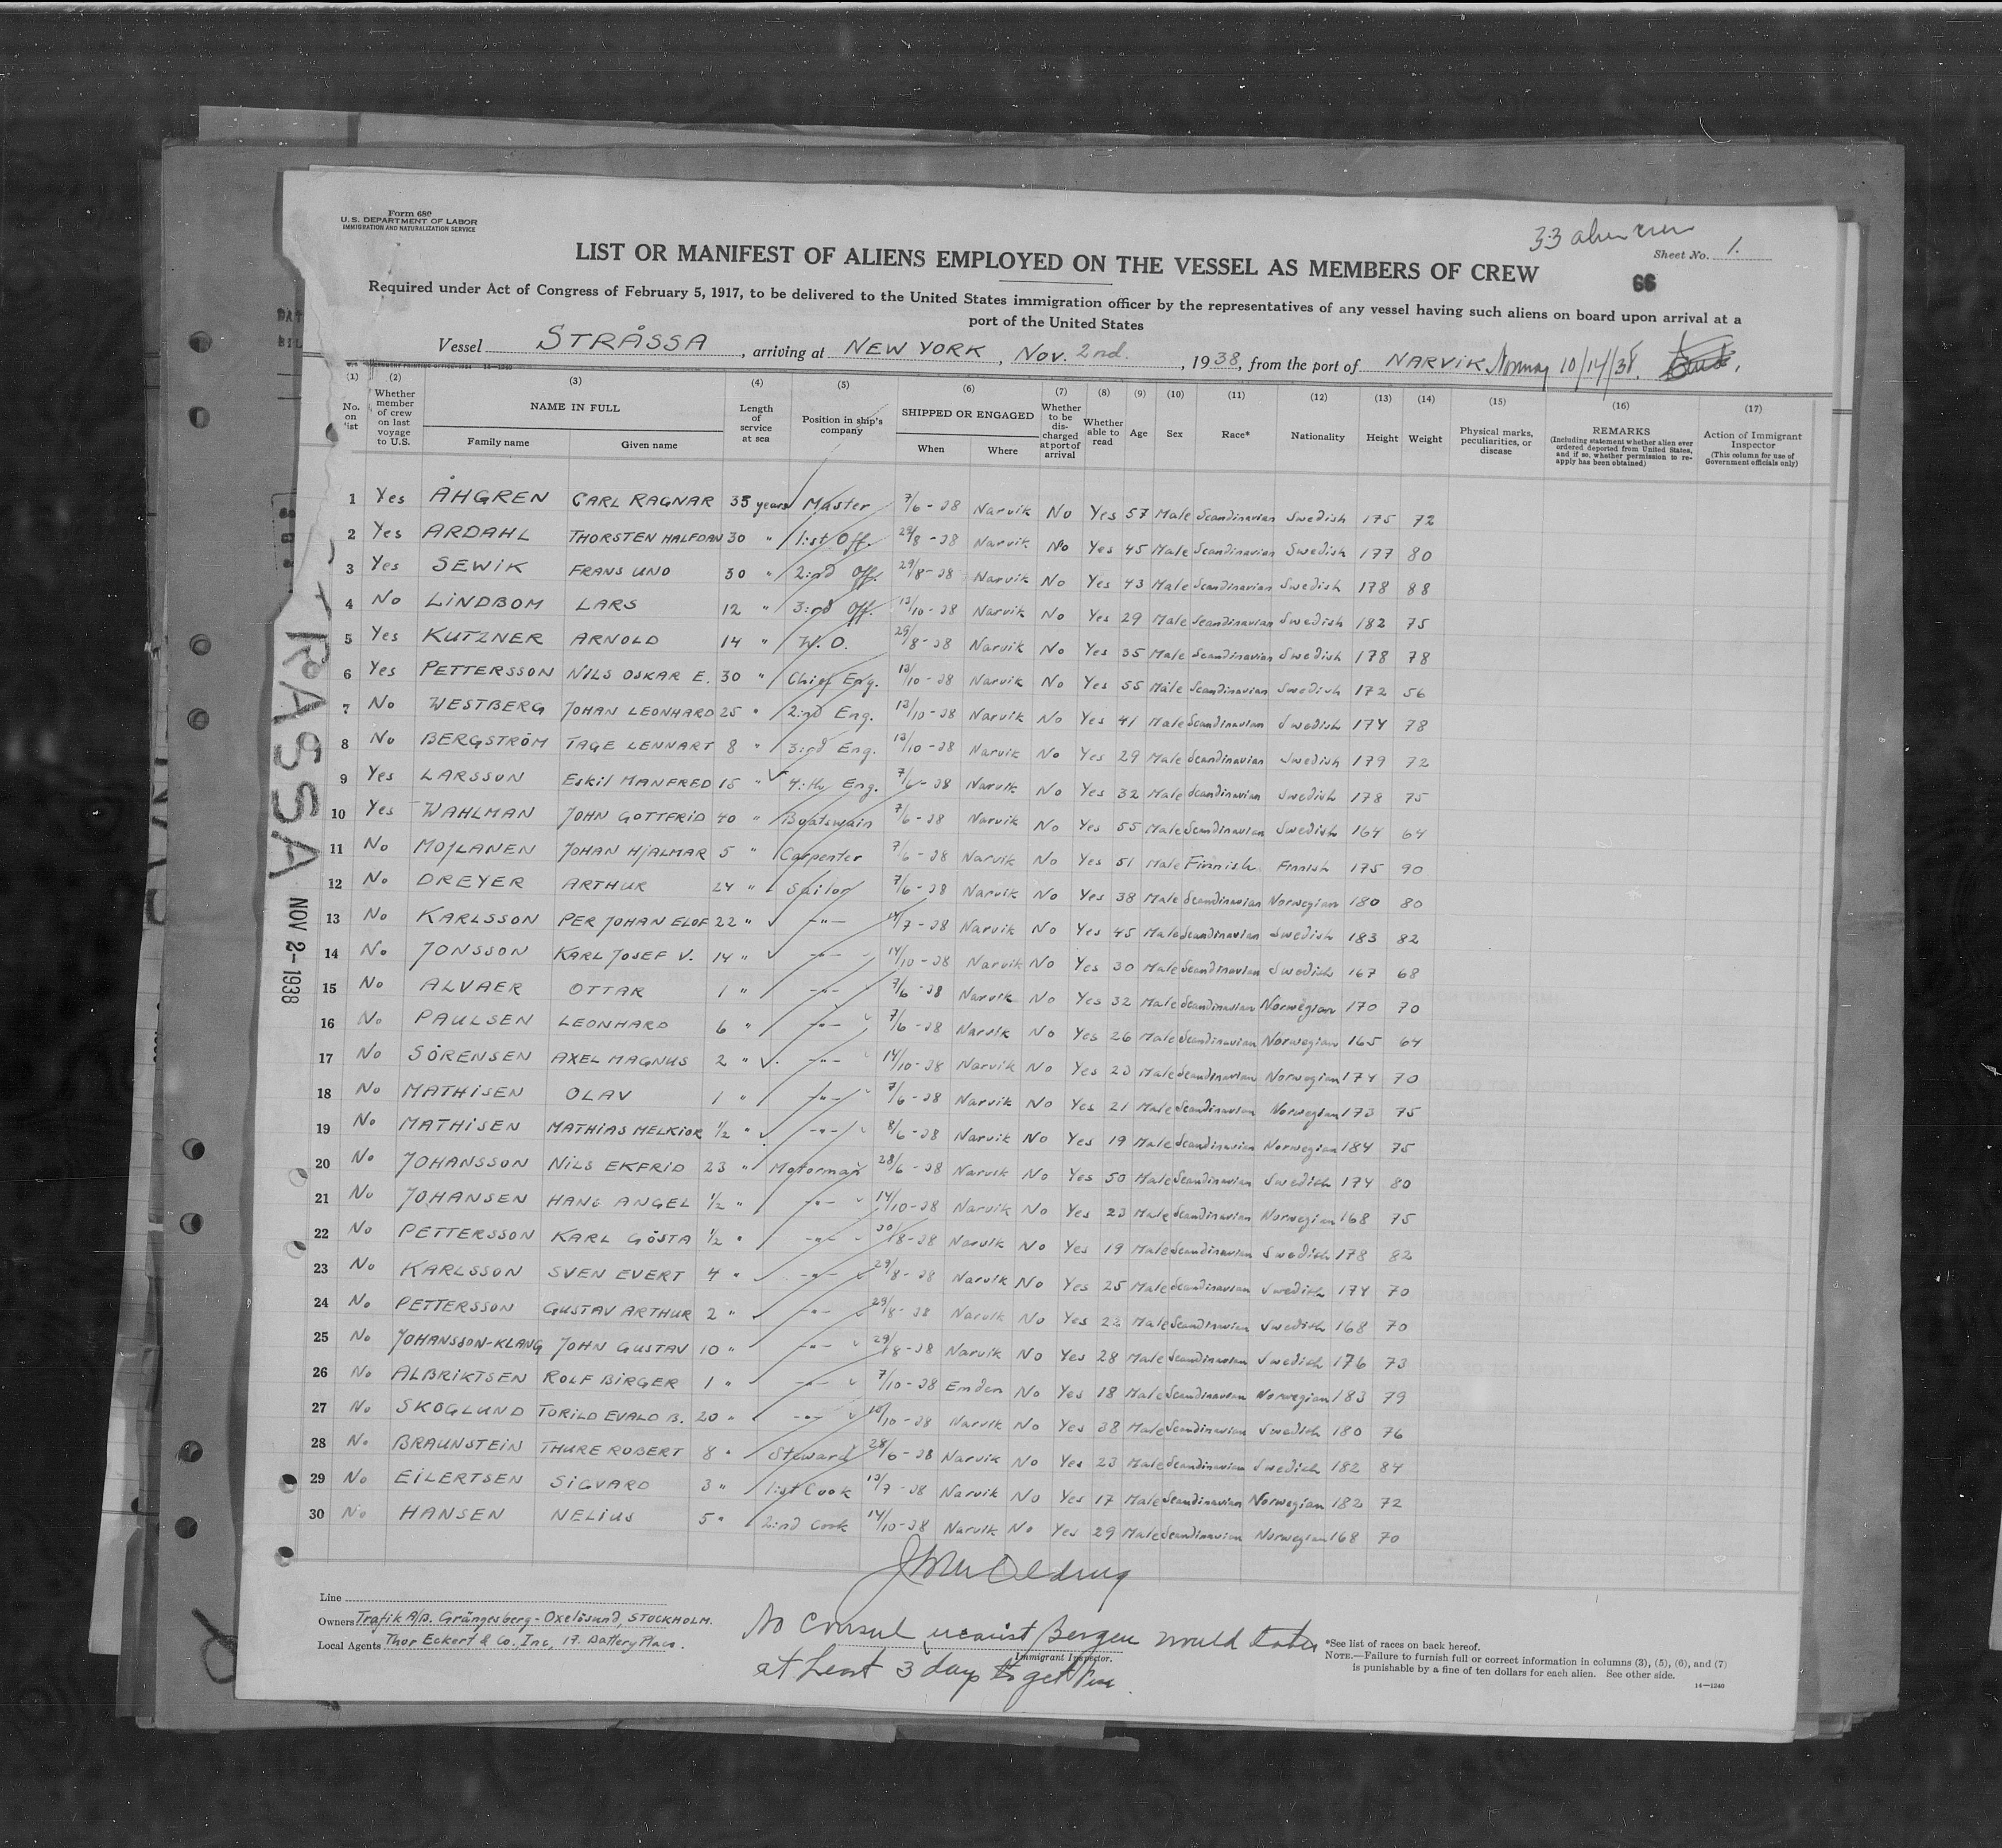 Form 680
U. S. DEPARTMENT OF LABOR
IMMIGRATION AND NATURALIZATION SERVICE
33 alien crew
Sheet No. 1.
LIST OR MANIFEST OF ALIENS EMPLOYED ON THE VESSEL AS MEMBERS OF CREW
66
Required under Act of Congress of February 5, 1917, to be delivered to the United States immigration officer by the representatives of any vessel having such aliens on board upon arrival at a
port of the United States
Vessel STRÅSSA, arriving at NEW YORK, Nov. 2nd., 1938, from the port of NARVIK, Norway 10/14/38.
(1) (2) (3) (4) (5) (6) (7) (8) (9) (10) (11) (12) (13) (14) (15) (16) (17)
No. on list
Whether member of crew on last voyage to U.S.
NAME IN FULL
Family name
Given name
Length of service at sea
Position in ship's company
SHIPPED OR ENGAGED
When
Where
Whether to be discharged at port of arrival
Whether able to read
Age
Sex
Race*
Nationality
Height
Weight
Physical marks, peculiarities, or disease
REMARKS
(Including statement whether alien ever ordered deported from United States, and if so, whether permission to reapply has been obtained)
Action of Immigrant Inspector
(This column for use of Government officials only)
1 Yes ÅHGREN CARL RAGNAR 35 years Master 7/6-38 Narvik No Yes 57 Male Scandinavian Swedish 175 72
2 Yes ARDAHL THORSTEN HALFDAN 30 " 1:st Off. 29/8-38 Narvik No Yes 45 Male Scandinavian Swedish 177 80
3 Yes SEWIK FRANS UNO 30 " 2:nd Off. 29/8-38 Narvik No Yes 43 Male Scandinavian Swedish 178 88
4 No LINDBOM LARS 12 " 3:rd Off. 13/10-38 Narvik No Yes 29 Male Scandinavian Swedish 182 75
5 Yes KUTZNER ARNOLD 14 " W.O. 29/8-38 Narvik No Yes 35 Male Scandinavian Swedish 178 78
6 Yes PETTERSSON NILS OSKAR E. 30 " Chief Eng. 13/10-38 Narvik No Yes 55 Male Scandinavian Swedish 172 56
7 No WESTBERG JOHAN LEONHARD 25 " 2:nd Eng. 13/10-38 Narvik No Yes 41 Male Scandinavian Swedish 174 78
8 No BERGSTRÖM TAGE LENNART 8 " 3:rd Eng. 13/10-38 Narvik No Yes 29 Male Scandinavian Swedish 179 72
9 Yes LARSSON Eskil MANFRED 15 " 4:th Eng. 7/6-38 Narvik No Yes 32 Male Scandinavian Swedish 178 75
10 Yes WAHLMAN JOHN GOTTFRID 40 " Boatswain 7/6-38 Narvik No Yes 55 Male Scandinavian Swedish 164 64
11 No MOJLANEN JOHAN HJALMAR 5 " Carpenter 7/6-38 Narvik No Yes 51 Male Finnish Finnish 175 90
12 No DREYER ARTHUR 24 " Sailor 7/6-38 Narvik No Yes 38 Male Scandinavian Norwegian 180 80
13 No KARLSSON PER JOHAN ELOF 22 " -"- 14/7-38 Narvik No Yes 45 Male Scandinavian Swedish 183 82
14 No JONSSON KARL JOSEF V. 14 " -"- 14/10-38 Narvik No Yes 30 Male Scandinavian Swedish 167 68
15 No ALVAER OTTAR 1 " -"- 7/6-38 Narvik No Yes 32 Male Scandinavian Norwegian 170 70
16 No PAULSEN LEONHARD 6 " -"- 7/6-38 Narvik No Yes 26 Male Scandinavian Norwegian 165 64
17 No SÖRENSEN AXEL MAGNUS 2 " -"- 14/10-38 Narvik No Yes 23 Male Scandinavian Norwegian 174 70
18 No MATHISEN OLAV 1 " -"- 7/6-38 Narvik No Yes 21 Male Scandinavian Norwegian 173 75
19 No MATHISEN MATHIAS MELKIOR 1/2 " -"- 8/6-38 Narvik No Yes 19 Male Scandinavian Norwegian 184 75
20 No JOHANSSON NILS EKFRID 23 " Motorman 28/6-38 Narvik No Yes 50 Male Scandinavian Swedish 174 80
21 No JOHANSEN HANS ANGEL 1/2 " -"- 14/10-38 Narvik No Yes 23 Male Scandinavian Norwegian 168 75
22 No PETTERSSON KARL GÖSTA 1/2 " -"- 30/8-38 Narvik No Yes 19 Male Scandinavian Swedish 178 82
23 No KARLSSON SVEN EVERT 4 " -"- 29/8-38 Narvik No Yes 25 Male Scandinavian Swedish 174 70
24 No PETTERSSON GUSTAV ARTHUR 2 " -"- 29/8-38 Narvik No Yes 22 Male Scandinavian Swedish 168 70
25 No JOHANSSON-KLANG JOHN GUSTAV 10 " -"- 29/8-38 Narvik No Yes 28 Male Scandinavian Swedish 176 73
26 No ALBRIKTSEN ROLF BIRGER 1 " -"- 7/10-38 Emden No Yes 18 Male Scandinavian Norwegian 183 79
27 No SKOGLUND TORILD EVALD B. 20 " -"- 10/10-38 Narvik No Yes 38 Male Scandinavian Swedish 180 76
28 No BRAUNSTEIN THURE ROBERT 8 " Steward 28/6-38 Narvik No Yes 23 Male Scandinavian Swedish 182 84
29 No EILERTSEN SIGVARD 3 " 1:st Cook 13/7-38 Narvik No Yes 17 Male Scandinavian Norwegian 182 72
30 No HANSEN NELIUS 5 " 2:nd Cook 14/10-38 Narvik No Yes 29 Male Scandinavian Norwegian 168 70
Line
Owners Trafik A/B. Grängesberg-Oxelösund, STOCKHOLM.
Local Agents Thor Eckert & Co. Inc, 17. Battery Place.
No Consul nearest Bergen would take
at least 3 days to get
Immigrant Inspector.
*See list of races on back hereof.
NOTE.—Failure to furnish full or correct information in columns (3), (5), (6), and (7)
is punishable by a fine of ten dollars for each alien. See other side.
14—1240
STRÅSSA
NOV 2-1938